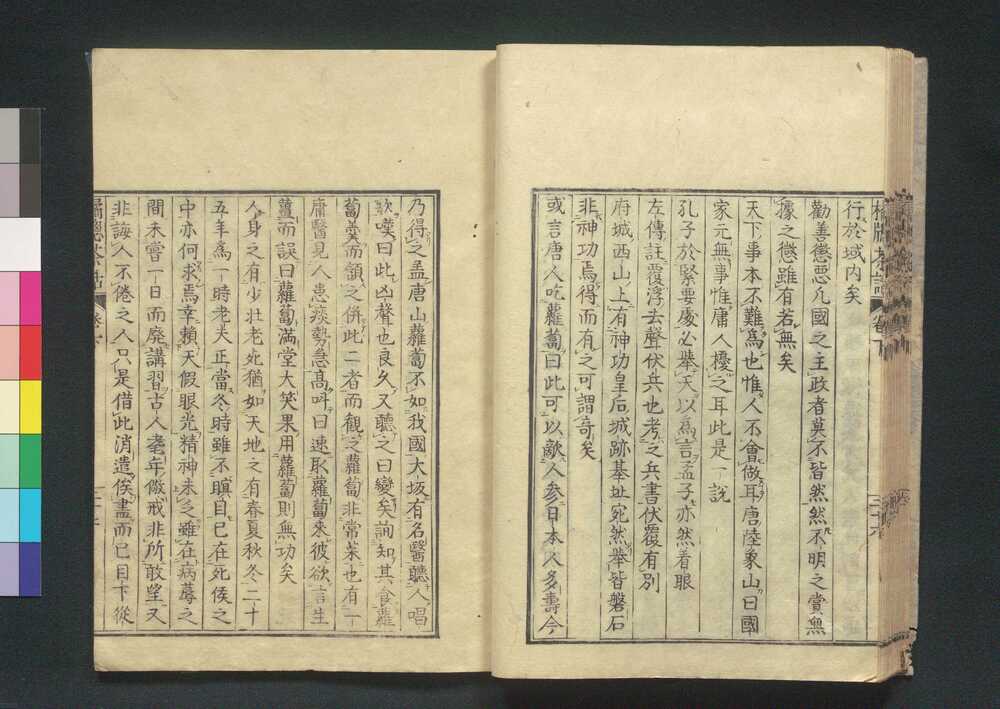 行於域内矣
勸善懲惡凡國之主政者莫不皆然然不明之賞無
據之懲雖有若無矣
天下事本不難為也惟人不會做耳唐陸象山曰國
家元無事惟庸人擾之耳此是一說
孔子於緊要處必舉天以為言孟子亦然着眼
左傳註覆浮去聲伏兵也考之兵書伏覆有別
府城西山上有神功皇后城跡基址宛然舉皆磐石
非神功焉得而有之可謂奇矣
或言唐人吃蘿蔔曰此可以敵人參日本人多壽今
乃得之孟唐山蘿蔔不如我國大坂有名醫聽人唱
歌嘆曰此凶聲也良久又聽之曰變矣詢知其食蘿
蔔羹而頷之併此二者而觀之蘿蔔非常菜也有一
庸醫見人患痰勢急高呌曰速取蘿蔔來彼欲言生
薑而誤曰蘿蔔滿堂大笑果用蘿蔔則無功矣
人身之有少壯老死猶如天地之有春夏秋冬二十
五年為一時老夫正當冬時雖不瞑目已在死候之
中亦何求焉幸賴天假眼光精神未之雖在病蓐之
間未嘗一日而廢講習古人耄年儆戒非所敢望又
非誨人不倦之人只是借此消遣俟盡而已目下從